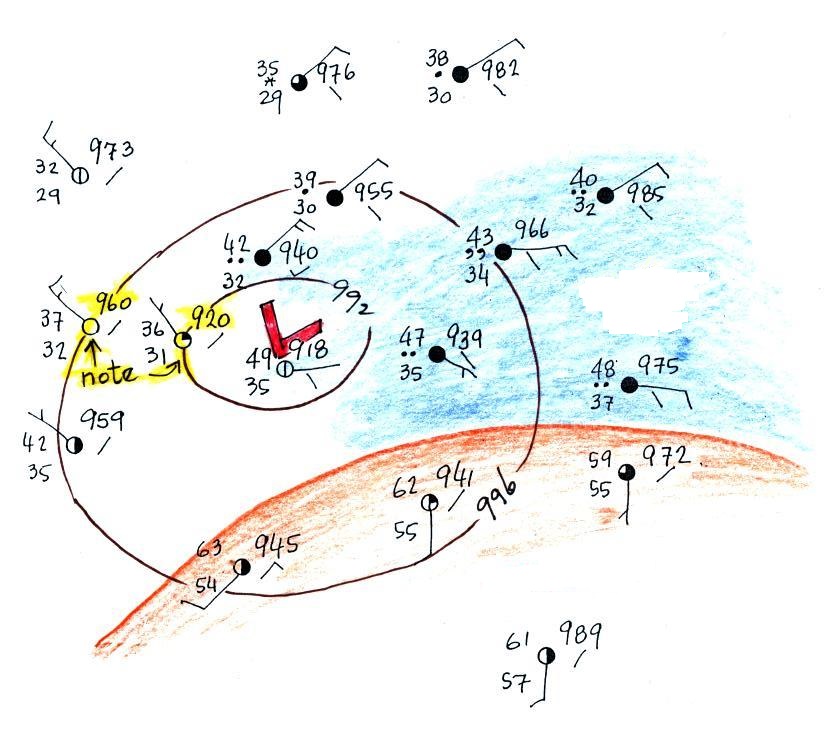 35 976
29
38 982
30
32 973
29
39 955
30
40 985
32
42 940
32
43 966
34
992
37 960
32
36 920
31
note
L
49 918
35
47 939
35
48 975
37
42 959
35
62 941
55
996
59 972
55
63 945
54
61 989
57